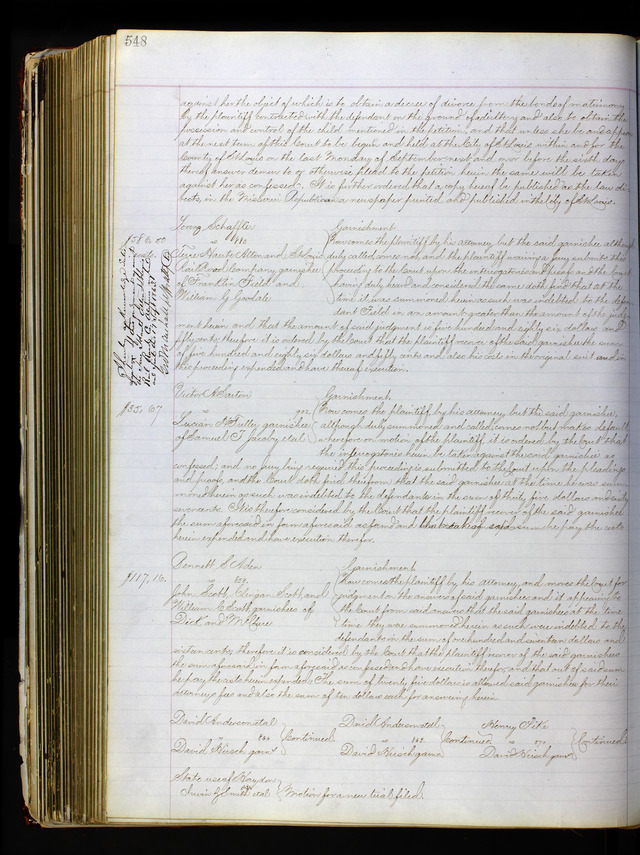 548
against her the object of which is to obtain a decree of divorce from the bonds of matrimony
by the plaintiff contracted with the defendant on the ground of adultery and also to obtain the
possession and control of the child mentioned in the petition, and that unless she be and appear
at the next term of this Court to be begun and held at the City of St Louis within and for the
County of St Louis on the last Monday of September next and on or before the sixth day
thereof answer demur to or otherwise plead to the petition herein the same will be taken
against her as confessed. It is further ordered that a copy hereof be published as the law di-
rects, in the Missouri Republican a newspaper printed and published in the City of St Louis.
Schaffter
Terre Haute Alton and St Louis
Rail Road Company garnishee
of Franklin Field and
William G Goodale
Garnishment
Now comes the plaintiff by his attorney, but the said garnishee although
duly called comes not, and the plaintiff waiving a jury submits this
proceeding to the Court upon the interrogatories and proof and the Court
having duly heard and considered the same doth find that at the
time it was summoned herein as such was indebted to the defen-
dant Field in an amount greater than the amount of the judg-
$586.50
ment herein and that the amount of said judgment is five hundred and eighty six dollars and
fifty cents, therefore it is ordered by the Court that the plaintiff recover of the said garnishee the sum
of five hundred and eighty six dollars and fifty cents and also his costs in the original suit and in
this proceeding expended and have thereof execution.
Victor A Sarton
$35.67
garnishee
of Samuel T Jacoby et al
Garnishment.
Now comes the plaintiff by his attorney but the said garnishee,
although duly summoned and called, comes not but makes default
wherefore on motion of the plaintiff it is ordered by the Court that
the interrogatories herein be taken against the said garnishee as
confessed; and no jury being required this proceeding is submitted to the Court upon the pleadings
and proofs, and the Court doth find therefrom that the said garnishee at the time he was sum-
moned herein as such was indebted to the defendants in the sum of thirty five dollars and sixty
seven cents. It is therefore considered by the Court that the plaintiff recover of the said garnishee
the sum aforesaid in form aforesaid as found and that out of said sum he pay the costs
herein expended and have execution therefor.
Bennett S Alden
$117.16.
John Scott, and
William garnishees of
Dick and
Garnishment
Now comes the plaintiff by his attorney, and moves the Court for
judgment on the answer of said garnishees and it appearing to
the Court from said answer that the said garnishees at the time
time they were summoned herein as such were indebted to the
defendants in the sum of one hundred and seventeen dollars and
sixteen cents, therefore it is considered by the Court that the plaintiff recover of the said garnishees
the sum aforesaid in form aforesaid as confessed and have execution therefor, and that out of said sum
he pay the costs herein expended. The sum of twenty five dollars is allowed said garnishees for their
attorneys fees and also the sum of ten dollars each for answering herein
David Anderson et al
David Hirsch garn
Continued
David Anderson et al
David Hirsch garn
Continued
Henry Pike
David Hirsch garn
Continued
State use of Haydon
Smith et al
Motion for a new trial filed.